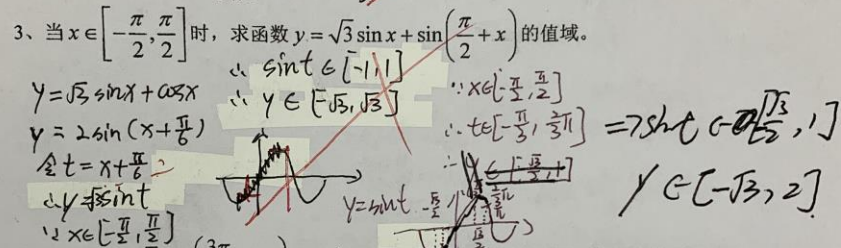 3、当x∈[-π/2, π/2]时，求函数y=√3 sin x+sin(π/2+x)的值域。
y=√3 sinx+cosx
y=2sin(x+π/6)
令t=x+π/6
∴y=√3sint
∵x∈[-π/2, π/2]
∴sint∈[-1,1]
∴y∈[-√3,√3]
∵x∈[-π/2, π/2]
∴t∈[-π/3, 2/3π]
y=sint
=>sint∈[-√3/2, 1]
y∈[-√3, 2]